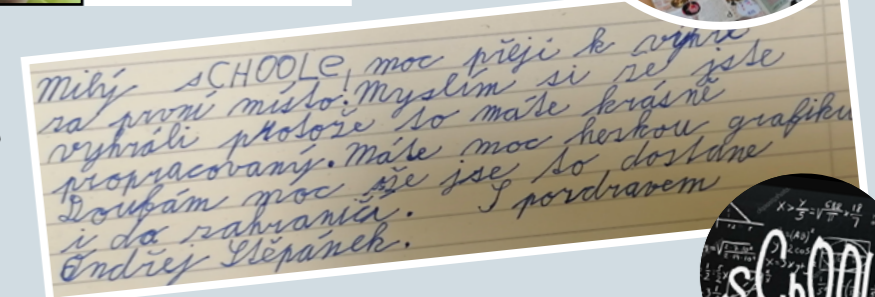 Milý sCHOOLe, moc přeji k výhře
za první místo! Myslím si že jste
vyhráli protože to máte krásně
propracovaný. Máte moc heskou grafiku
Doufám moc že jse to dostane
i do zahraničí. S pozdravem
Ondřej Štěpánek.
sCHOOL